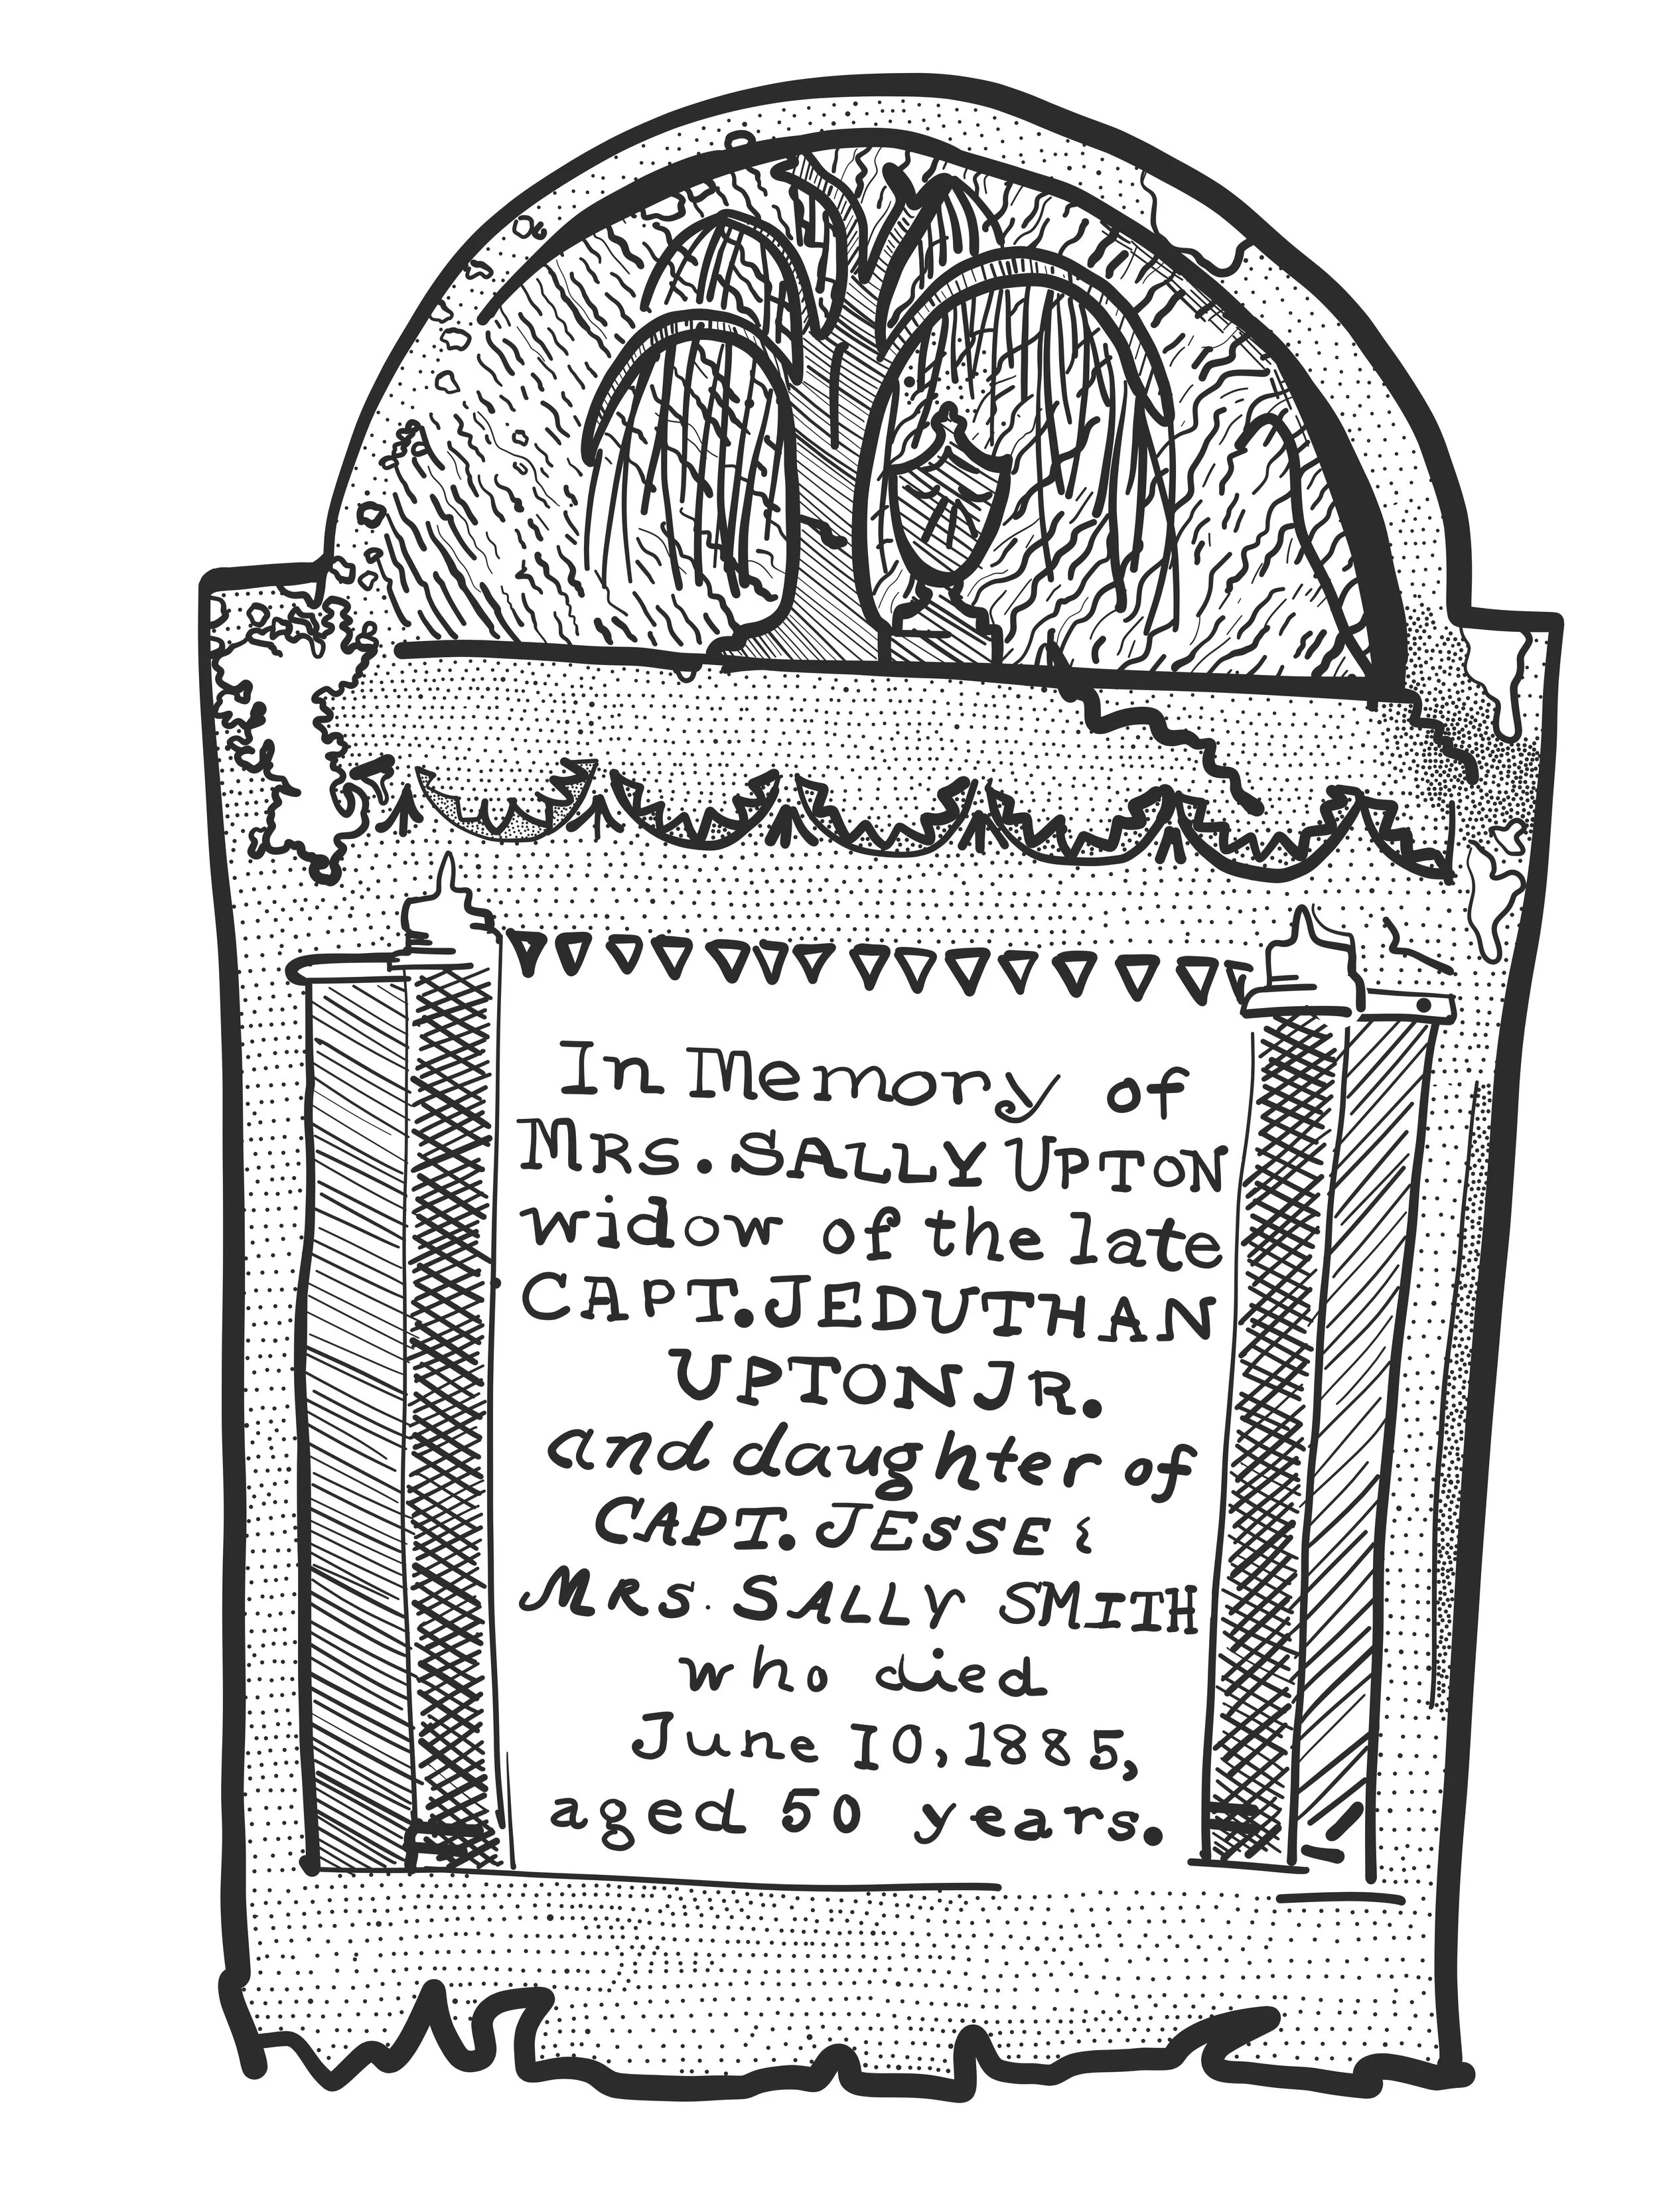 In Memory of
MRS. SALLY UPTON
widow of the late
CAPT. JEDUTHAN
UPTON JR.
and daughter of
CAPT. JESSE &
MRS. SALLY SMITH
who died
June 10, 1885,
aged 50 years.